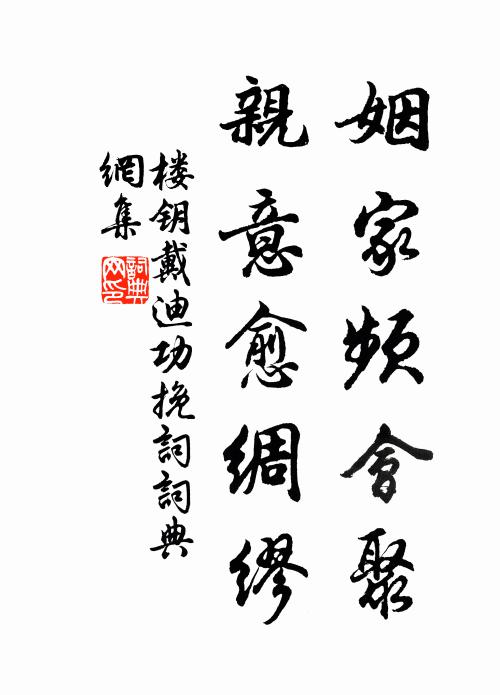 姻家频會聚
親意愈綢繆
楼钥戴迪功挽詞詞典
網集
詞典網印